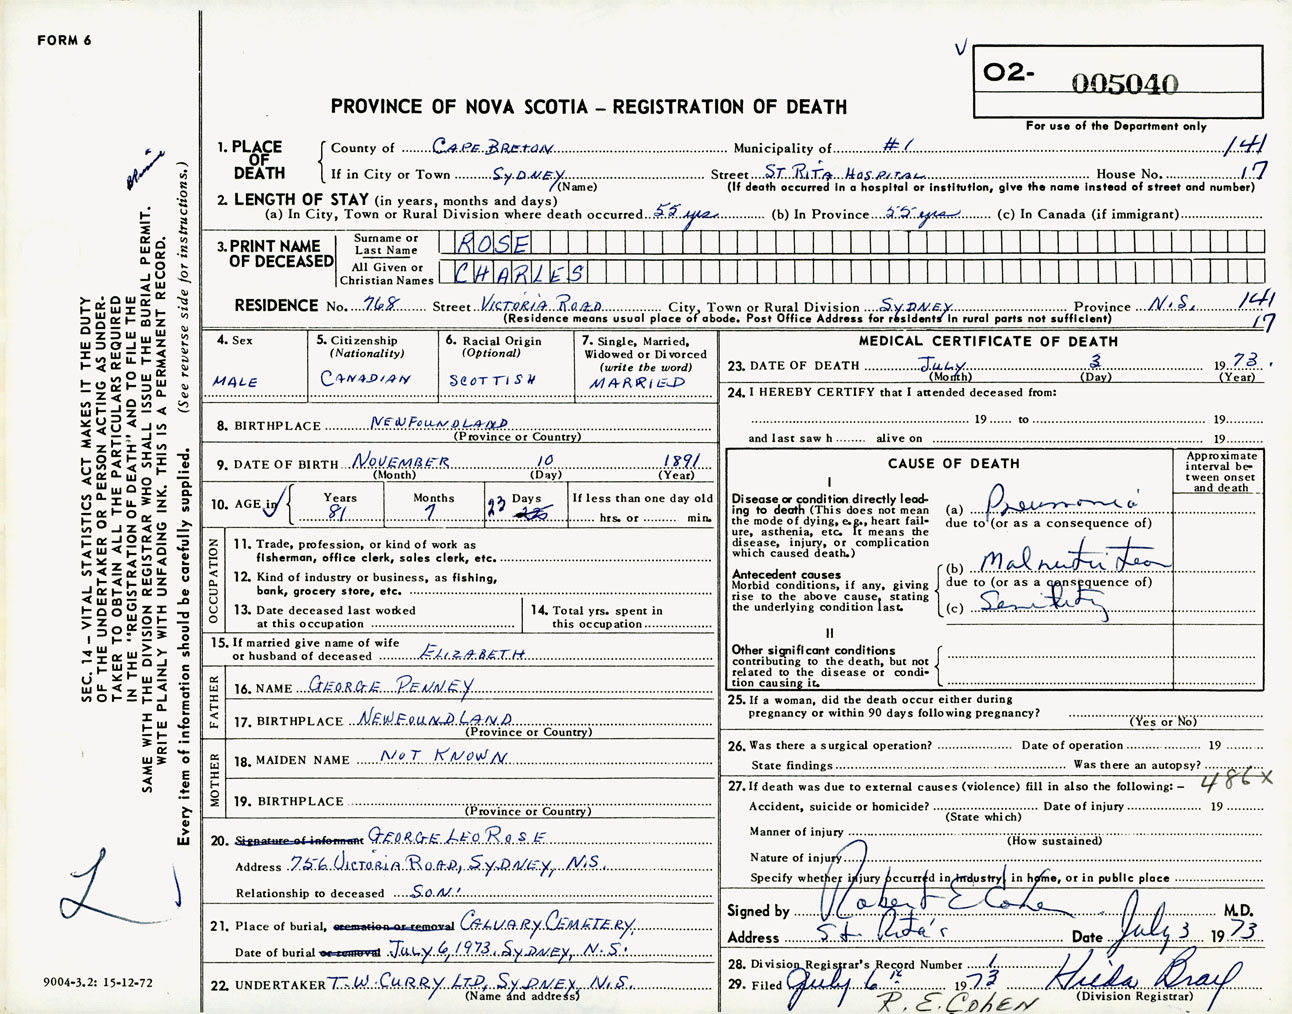 FORM 6
O2- 005040
PROVINCE OF NOVA SCOTIA – REGISTRATION OF DEATH
For use of the Department only
1. PLACE OF DEATH
County of CAPE BRETON Municipality of #1 141
If in City or Town SYDNEY (Name) Street ST RITA HOSPITAL House No. 17
(If death occurred in a hospital or institution, give the name instead of street and number)
2. LENGTH OF STAY (in years, months and days)
(a) In City, Town or Rural Division where death occurred 55 yrs (b) In Province 55 yrs (c) In Canada (if immigrant)
3. PRINT NAME OF DECEASED
Surname or Last Name ROSE
All Given or Christian Names CHARLES
RESIDENCE No. 768 Street VICTORIA ROAD City, Town or Rural Division SYDNEY Province N.S. 141
(Residence means usual place of abode. Post Office Address for residents in rural parts not sufficient) 17
4. Sex
MALE
5. Citizenship
(Nationality)
CANADIAN
6. Racial Origin
(Optional)
SCOTTISH
7. Single, Married,
Widowed or Divorced
(write the word)
MARRIED
8. BIRTHPLACE NEWFOUNDLAND
(Province or Country)
9. DATE OF BIRTH NOVEMBER 10 1891
(Month) (Day) (Year)
10. AGE in
Years 81
Months 7
Days 23
If less than one day old
hrs. or min.
OCCUPATION
11. Trade, profession, or kind of work as
fisherman, office clerk, sales clerk, etc.
12. Kind of industry or business, as fishing,
bank, grocery store, etc.
13. Date deceased last worked
at this occupation
14. Total yrs. spent in
this occupation
15. If married give name of wife
or husband of deceased ELIZABETH
FATHER
16. NAME GEORGE PENNEY
17. BIRTHPLACE NEWFOUNDLAND
(Province or Country)
MOTHER
18. MAIDEN NAME NOT KNOWN
19. BIRTHPLACE
(Province or Country)
20. Signature of informant GEORGE LEO ROSE
Address 756 VICTORIA ROAD, SYDNEY, N.S.
Relationship to deceased SON
21. Place of burial, cremation or removal CALVARY CEMETERY
Date of burial or removal JULY 6, 1973, SYDNEY, N.S.
22. UNDERTAKER T.W. CURRY LTD, SYDNEY, N.S.
(Name and address)
MEDICAL CERTIFICATE OF DEATH
23. DATE OF DEATH July 3 1973.
(Month) (Day) (Year)
24. I HEREBY CERTIFY that I attended deceased from:
19 to 19
and last saw h alive on 19
CAUSE OF DEATH
Approximate interval between onset and death
I
Disease or condition directly lead-
ing to death (This does not mean
the mode of dying, e.g., heart fail-
ure, asthenia, etc. It means the
disease, injury, or complication
which caused death.)
(a) Pneumonia
due to (or as a consequence of)
Antecedent causes
Morbid conditions, if any, giving
rise to the above cause, stating
the underlying condition last.
(b) Malnutrition
due to (or as a consequence of)
(c) Senility
II
Other significant conditions
contributing to the death, but not
related to the disease or condi-
tion causing it.
25. If a woman, did the death occur either during
pregnancy or within 90 days following pregnancy?
(Yes or No)
26. Was there a surgical operation? Date of operation 19
State findings Was there an autopsy?
486X
27. If death was due to external causes (violence) fill in also the following: –
Accident, suicide or homicide? Date of injury 19
(State which)
Manner of injury
(How sustained)
Nature of injury
Specify whether injury occurred in industry, in home, or in public place
Signed by Robert E Cohen M.D.
Address St. Rita's Date July 3 1973
28. Division Registrar's Record Number 1
29. Filed July 6th 1973 Hilda Bray
(Division Registrar)
R. E. COHEN
SEC. 14 – VITAL STATISTICS ACT MAKES IT THE DUTY
OF THE UNDERTAKER OR PERSON ACTING AS UNDER-
TAKER TO OBTAIN ALL THE PARTICULARS REQUIRED
IN THE "REGISTRATION OF DEATH" AND TO FILE THE
SAME WITH THE DIVISION REGISTRAR WHO SHALL ISSUE THE BURIAL PERMIT.
WRITE PLAINLY WITH UNFADING INK. THIS IS A PERMANENT RECORD.
Every item of information should be carefully supplied. (See reverse side for instructions.)
9004-3.2: 15-12-72